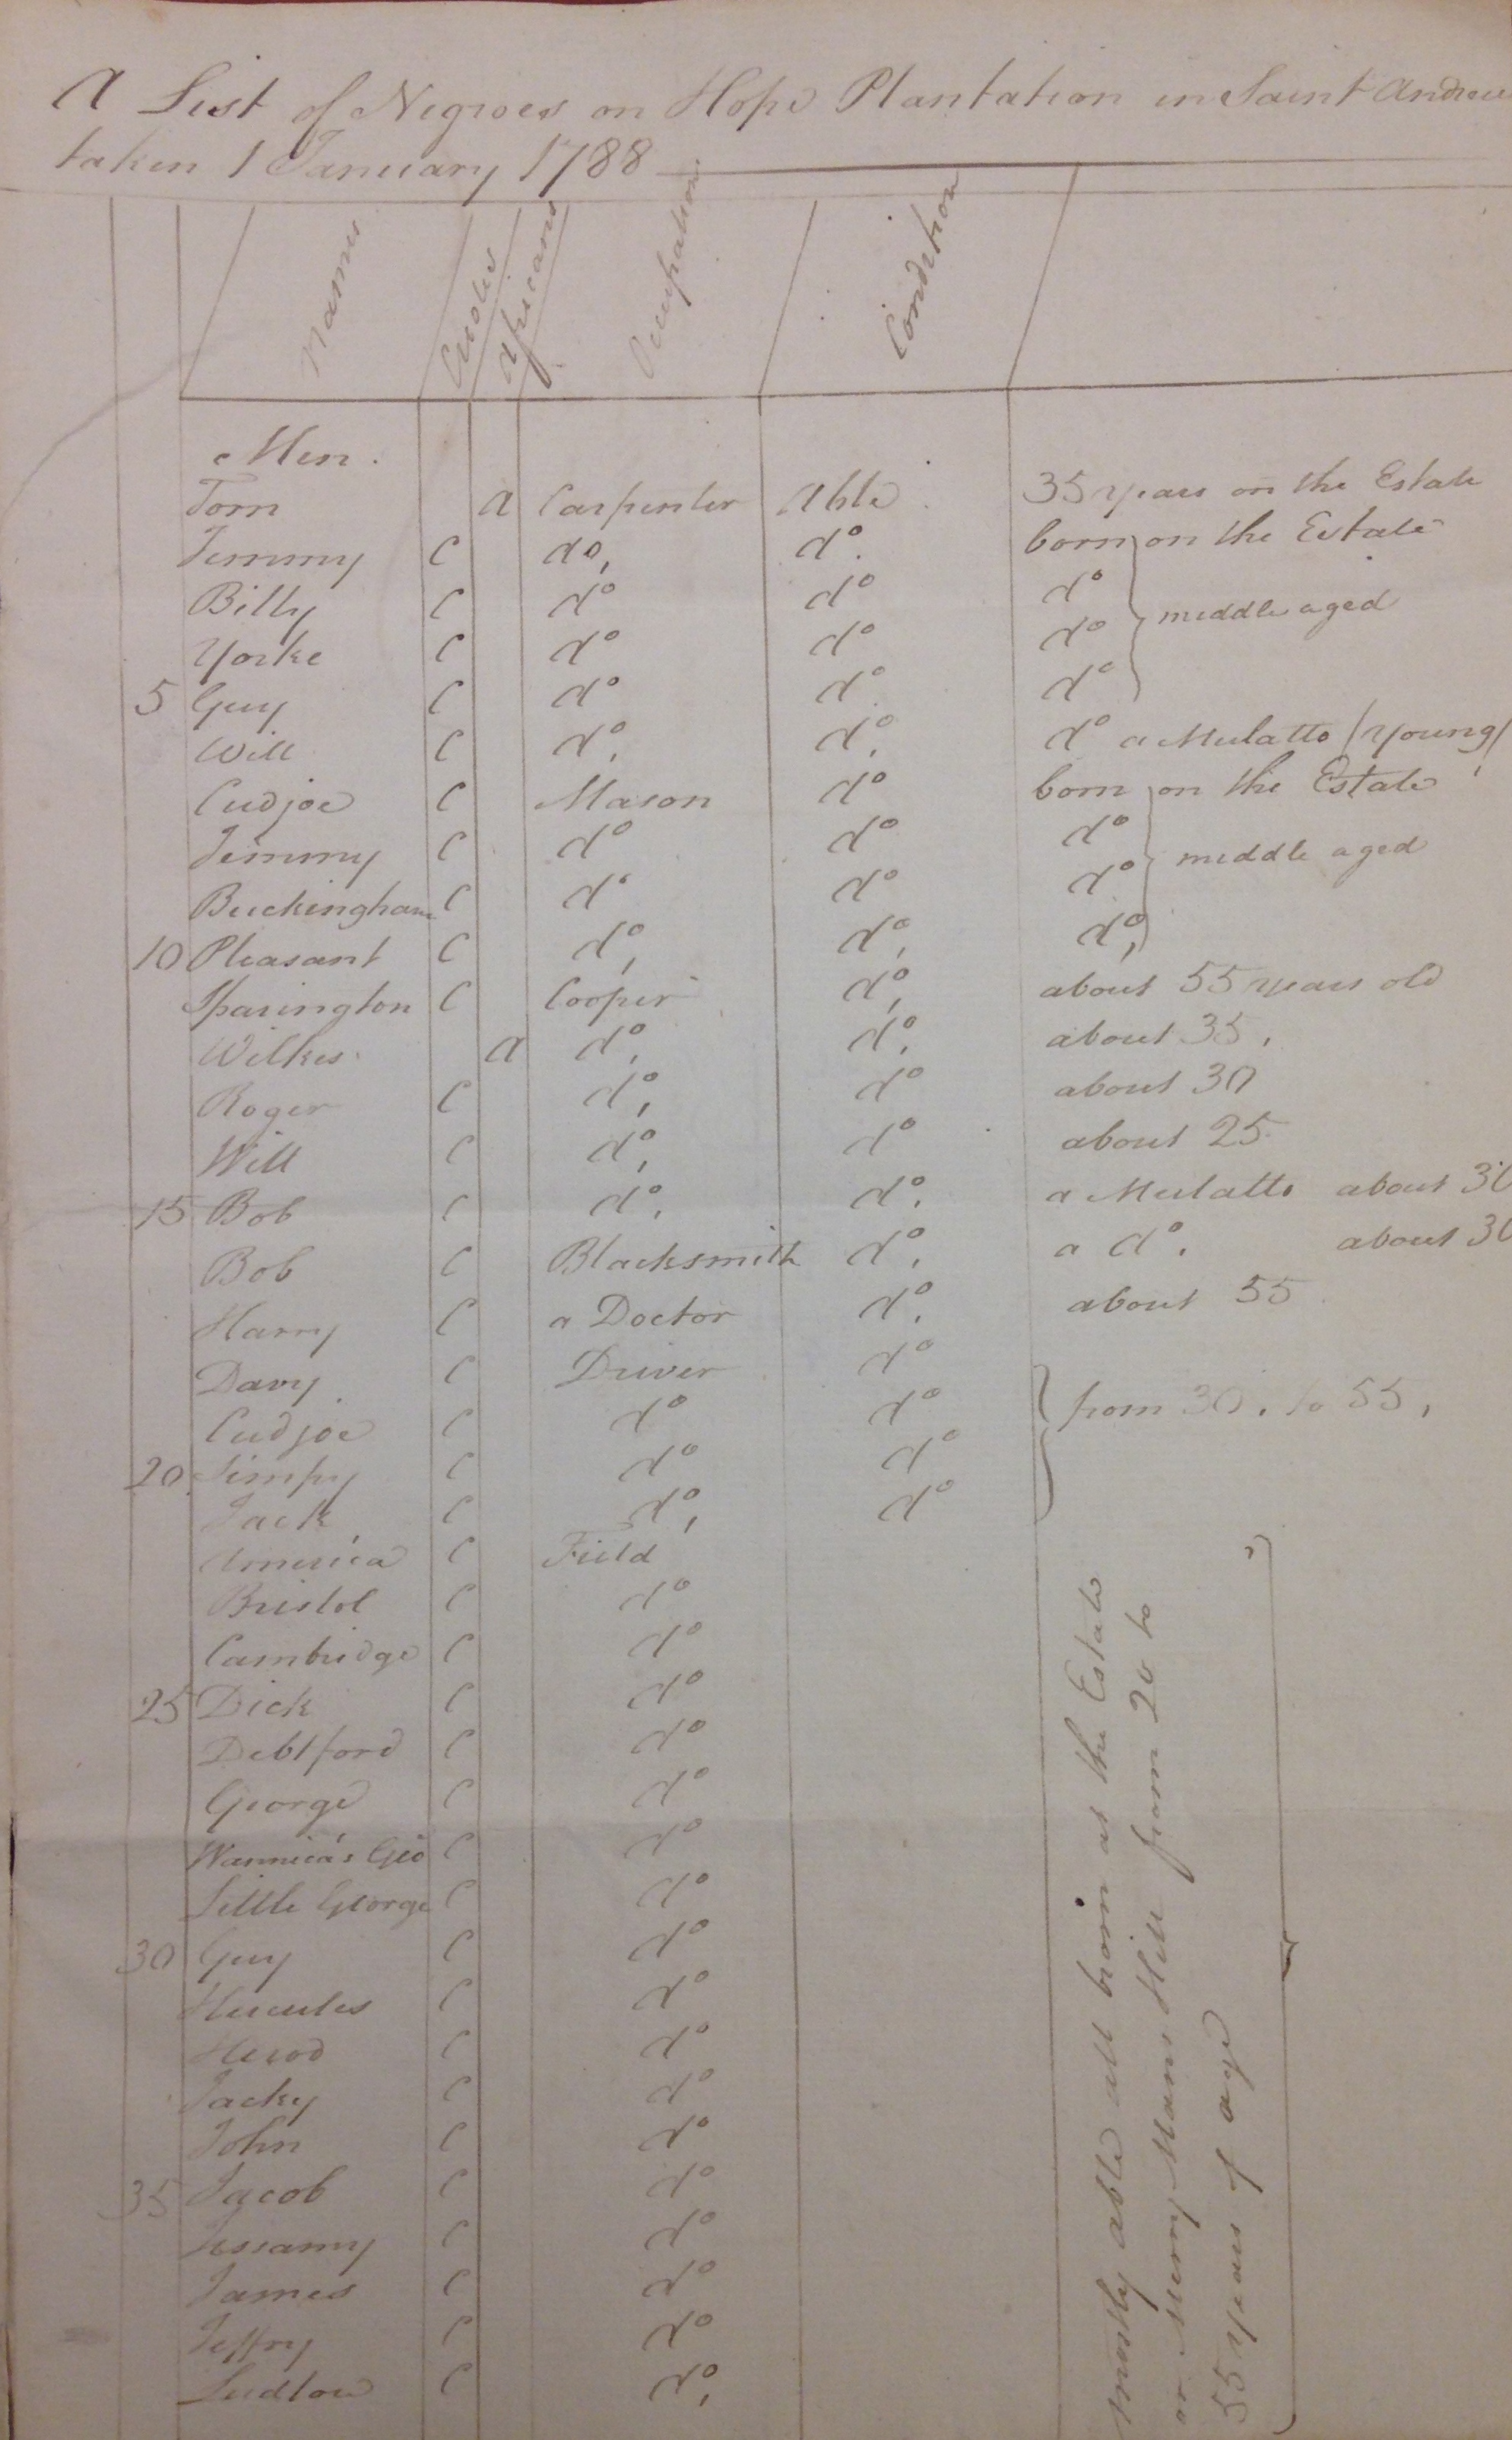 A List of Negroes on Hope Plantation in Saint Andrew
taken 1 January 1788
Names Creoles Africans Occupation Condition
Men.
Tom a Carpenter Able 35 years on the Estate
Jemmy C do, do. born on the Estate
Billy C do do do
Yorke C do do do middle aged
5 Guy C do do do
Will C do, do, do a Mulatto (young)
Cudjoe C Mason do born on the Estate
Jemmy C do do do
Buckingham C do do do middle aged
10 Pleasant C do, do, do,
Sparington C Cooper do, about 55 years old
Wilkes a do, do, about 35,
Roger C do, do about 30
Will C do, do about 25
15 Bob C do, do, a Mulatto about 30
Bob C Blacksmith do, a do, about 30
Harry C a Doctor do, about 55
Davy C Driver do
Cudjoe C do do from 30, to 55,
20 Simpy C do do
Jack C do, do
America C Field
Bristol C do
Cambridge C do
25 Dick C do
Debtford C do
George C do
Geo C do
Little George C do
30 Guy C do
Hercules C do
Herod C do
Jacky C do
John C do
35 Jacob C do
Jessamy C do
James C do
Jeffry C do
Ludlow C do,
mostly able all born at the Estate
or Merry Mans Hill from 20 to
55 years of age